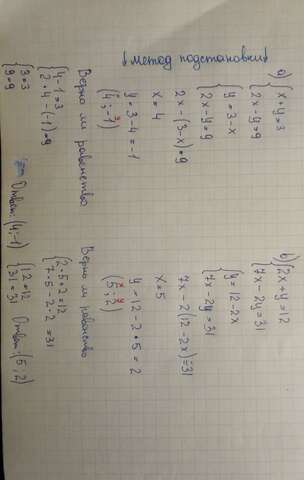 ↓метод подстановки↓
а) { x + y = 3
{ 2x - y = 9
{ y = 3 - x
{ 2x - y = 9
2x - (3 - x) = 9
x = 4
y = 3 - 4 = -1
(4; -1)
Верно ли равенство
{ 4 - 1 = 3
{ 2 · 4 - (-1) = 9
{ 3 = 3
{ 9 = 9
Ответ: (4; -1)
b) { 2x + y = 12
{ 7x - 2y = 31
{ y = 12 - 2x
{ 7x - 2y = 31
7x - 2(12 - 2x) = 31
x = 5
y = 12 - 2 · 5 = 2
x y
(5; 2)
Верно ли равенство
{ 2 · 5 + 2 = 12
{ 7 · 5 - 2 · 2 = 31
{ 12 = 12
{ 31 = 31
Ответ: (5; 2)